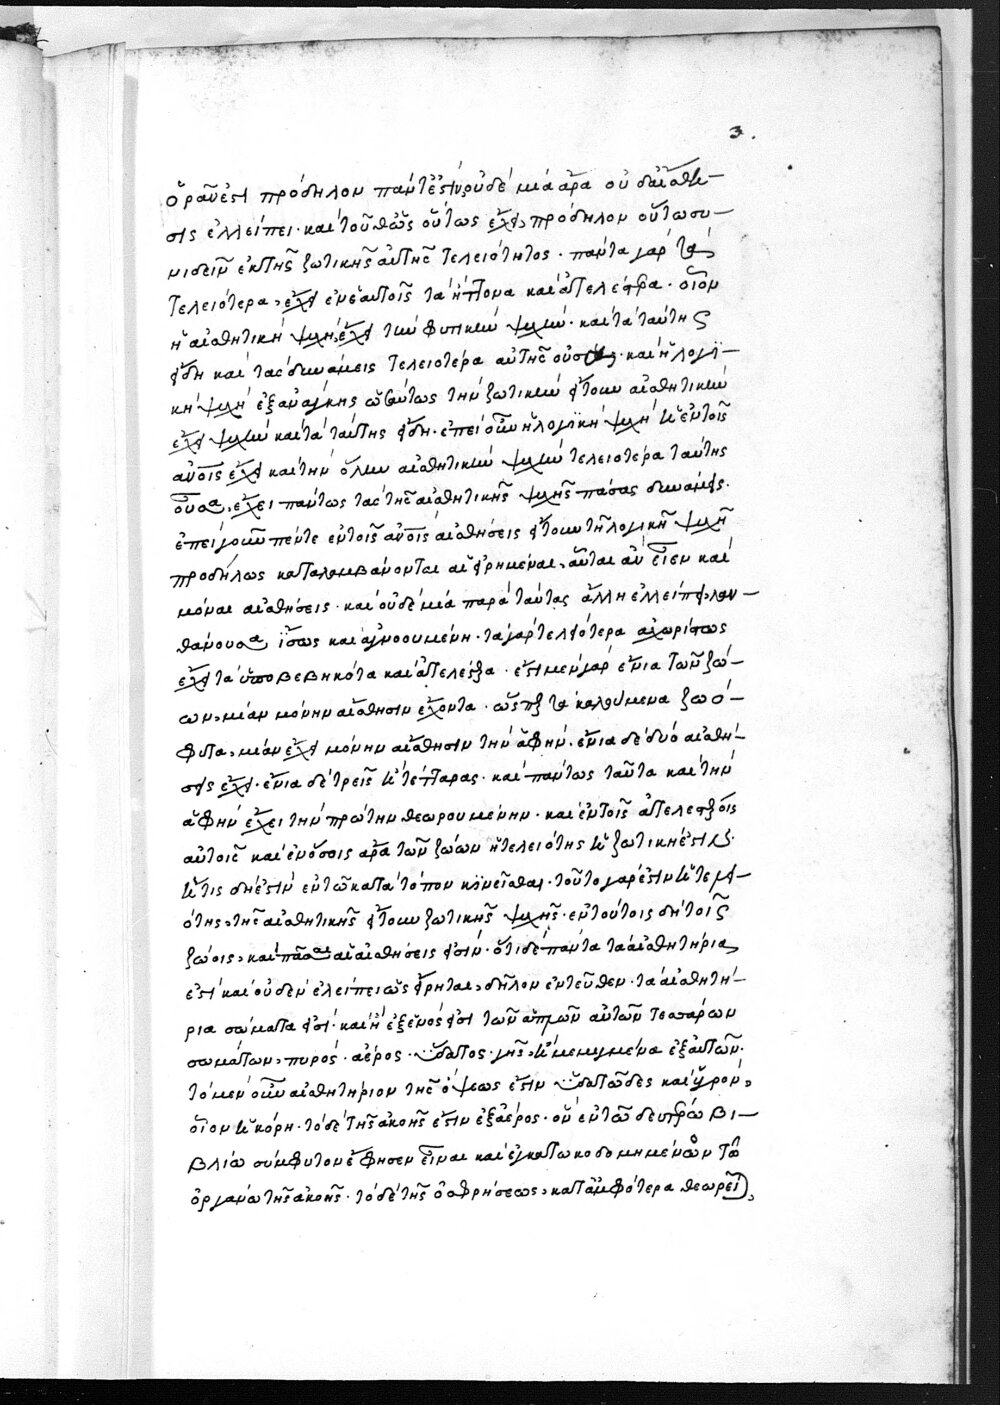 3.
ὁρᾶν ἐστι πρόδηλον παντί ἐστιν οὐδεμία ἄρα οὐδ' αἴσθη-
σις ἐλλείπει· καὶ τοῦθ' ὡς οὕτως ἔχει, πρόδηλον οὕτω συ-
νιδεῖν ἐκ τῆς ζωτικῆς αὐτῆς τελειότητος· πάντα γὰρ τὰ
τελειότερα, ἔχει ἐν ἑαυτοῖς τὰ ἥττονα καὶ ἀτελέστερα· οἷον
ἡ αἰσθητικὴ ψυχὴ, ἔχει τὴν φυτικὴν ψυχήν· καὶ τὰ ταύτης
εἴδη καὶ τὰς δυνάμεις τελειοτέρα αὐτῆς οὖσα· καὶ ἡ λογι-
κὴ ψυχὴ ἐξανάγκης ὡσαύτως τὴν ζωτικὴν ἤτουν αἰσθητικὴν
ἔχει ψυχὴν καὶ τὰ ταύτης εἴδη· ἐπεὶ οὖν ἡ λογικὴ ψυχὴ ἡ ἐν τοῖς
ἀνοις ἔχει καὶ τὴν ὅλην αἰσθητικὴν ψυχὴν τελειοτέρα ταύτης
οὖσα, ἔχει πάντως τὰς τῆς αἰσθητικῆς ψυχῆς πάσας δυνάμεις·
ἐπεὶ γοῦν πέντε ἐν τοῖς ἀνοις αἰσθήσεις ἤτουν τῇ λογικῇ ψυχῇ
προδήλως καταλαμβάνονται αἱ εἰρημέναι, αὗται ἂν εἶεν καὶ
μόναι αἰσθήσεις· καὶ οὐδεμία παρὰ ταύτας ἄλλη ἐλλείπει λαν-
θάνουσα ἴσως καὶ ἀγνοουμένη· τὰ γὰρ τελειότερα ἀχωρίστως
ἔχει τὰ ὑποβεβηκότα καὶ ἀτελέστερα· ἔστι μὲν γὰρ ἔνια τῶν ζώ-
ων, μίαν μόνην αἴσθησιν ἔχοντα· ὥσπερ τὰ καλούμενα ζωό-
φυτα, μίαν ἔχει μόνην αἴσθησιν τὴν ἁφήν· ἔνια δὲ δύο αἰσθή-
σεις ἔχει· ἔνια δὲ τρεῖς ἢ τέτταρας· καὶ πάντως ταῦτα καὶ τὴν
ἁφὴν ἔχει τὴν πρώτην θεωρουμένην· καὶ ἐν τοῖς ἀτελεστέροις
αὐτοῖς καὶ ἐν ὅσοις ἄρα τῶν ζώων ἡ τελειότης ἡ ζωτική ἐστιν·
ἥτις δή ἐστιν ἐν τῷ κατὰ τόπον κινεῖσθαι· τοῦτο γάρ ἐστιν ἡ τελει-
ότης, τῆς αἰσθητικῆς ἤτουν ζωτικῆς ψυχῆς· ἐν τούτοις δὴ τοῖς
ζώοις, καὶ πᾶσαι αἱ αἰσθήσεις εἰσίν· ὅτι δὲ πάντα τὰ αἰσθητήρια,
ἐστὶ καὶ οὐδὲν ἐλείπει ὡς εἴρηται, δῆλον ἐντεῦθεν· τὰ αἰσθητή-
ρια σώματα εἰσί· καὶ ἢ ἐξ ἑνός εἰσι τῶν ἁπλῶν αὐτῶν τεσσάρων
σωμάτων, πυρός· ἀέρος· ὕδατος· γῆς, ἢ μεμιγμένα ἐξ αὐτῶν·
τὸ μὲν οὖν αἰσθητήριον τῆς ὄψεως ἔστιν ὑδατῶδες καὶ ὑγρόν,
οἷον ἡ κόρη· τὸ δὲ τῆς ἀκοῆς ἔστιν ἐξ ἀέρος· ὃν ἐν τῷ δευτέρῳ βι-
βλίῳ σύμφυτον ἔφησεν εἶναι καὶ ἐγκατωκοδομημένον τῷ
ὀργάνῳ τῆς ἀκοῆς· τὸ δὲ τῆς ὀσφρήσεως, κατ' ἀμφότερα θεωρεῖ,